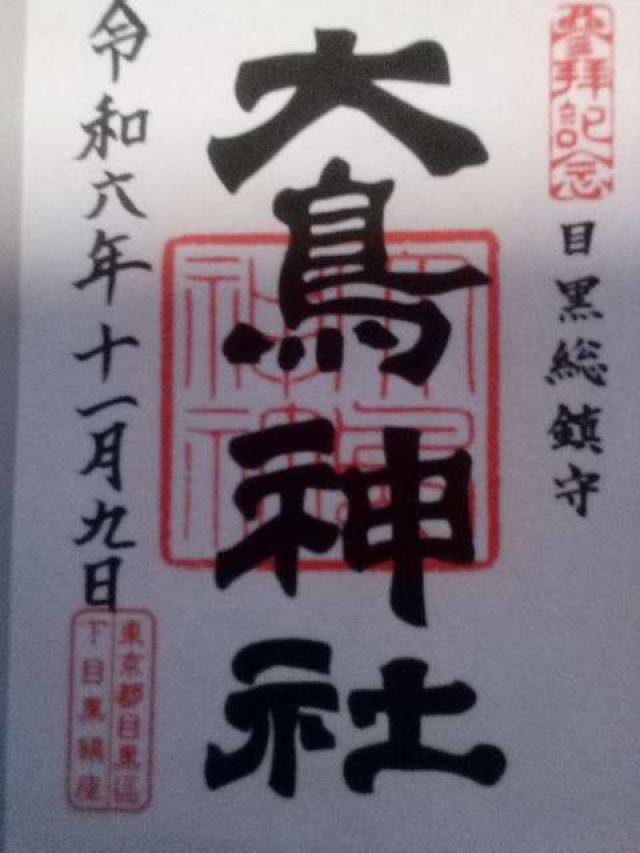 登拝記念
目黒総鎮守
大鳥神社
令和六年十一月九日
東京都目黒區
下目黒鎮座